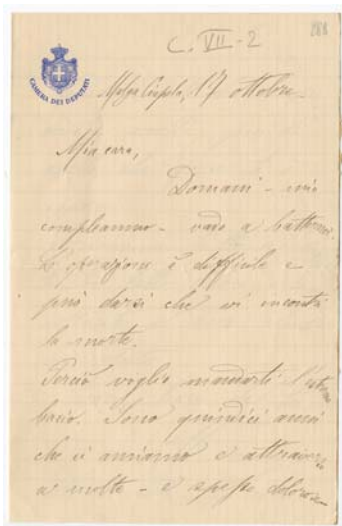 C. VII - 2
288
CAMERA DEI DEPUTATI
Malga Ciapela, 17 ottobre -
Mia cara,
Domani - mio
compleanno - vado a battermi.
L'operazione è difficile e
può darsi che vi incontri
la morte.
Perciò voglio mandarti l'ultimo
bacio. Sono quindici anni
che ci amiamo e attraverso
a molte - e spesso dolorose